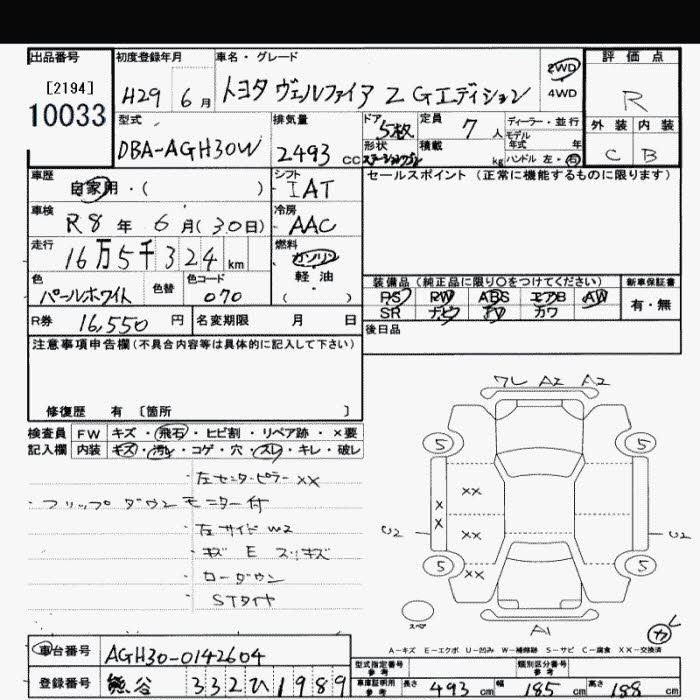 出品番号 初度登録年月 車名・グレード 2WD 評価点
[2194] H29 6月 トヨタ ヴェルファイア Z Gエディション 4WD R
10033 型式 排気量 ドア 5枚 定員 7人 ディーラー・並行 外装 内装
DBA-AGH30W 2493cc 形状 ステーションワゴン 積載 kg モデル年式 年 ハンドル 左・右 C B
車歴 自家用・( ) シフト IAT セールスポイント (正常に機能するものに限ります)
車検 R8年 6月(30日) 冷房 AAC
走行 16万5千324km 燃料 ガソリン 軽油 ( )
色 パールホワイト 色替 色コード 070 装備品(純正品に限り〇をつけてください) 新車保証書
PS PW ABS エアB AW 有・無
SR ナビ TV カワ
R券 16,550円 名変期限 月 日 後日品
注意事項申告欄(不具合内容等は具体的に記入して下さい)
修復歴 有 〔箇所 〕
検査員 FW キズ・飛石・ヒビ割・リペア跡・×要
記入欄 内装 キズ・汚レ・コゲ・穴・スレ・キレ・破レ
・左センターピラーXX
・フリップダウンモニター付
・左サイドW2
・キズ E スリキズ
・ローダウン
・STタイヤ
ワレ A2 A2
5 5
XX
X
X
U2 XX U2
5 5
XX
スペア A1
A-キズ E-エクボ U-凹み W-補修跡 S-サビ C-腐食 XX-交換済
車台番号 AGH30-0142604 型式指定番号 参考 類別区分番号 参考
登録番号 熊谷 332ひ1989 車庫証明用 参考 長さ 493cm 幅 185cm 高さ 188cm